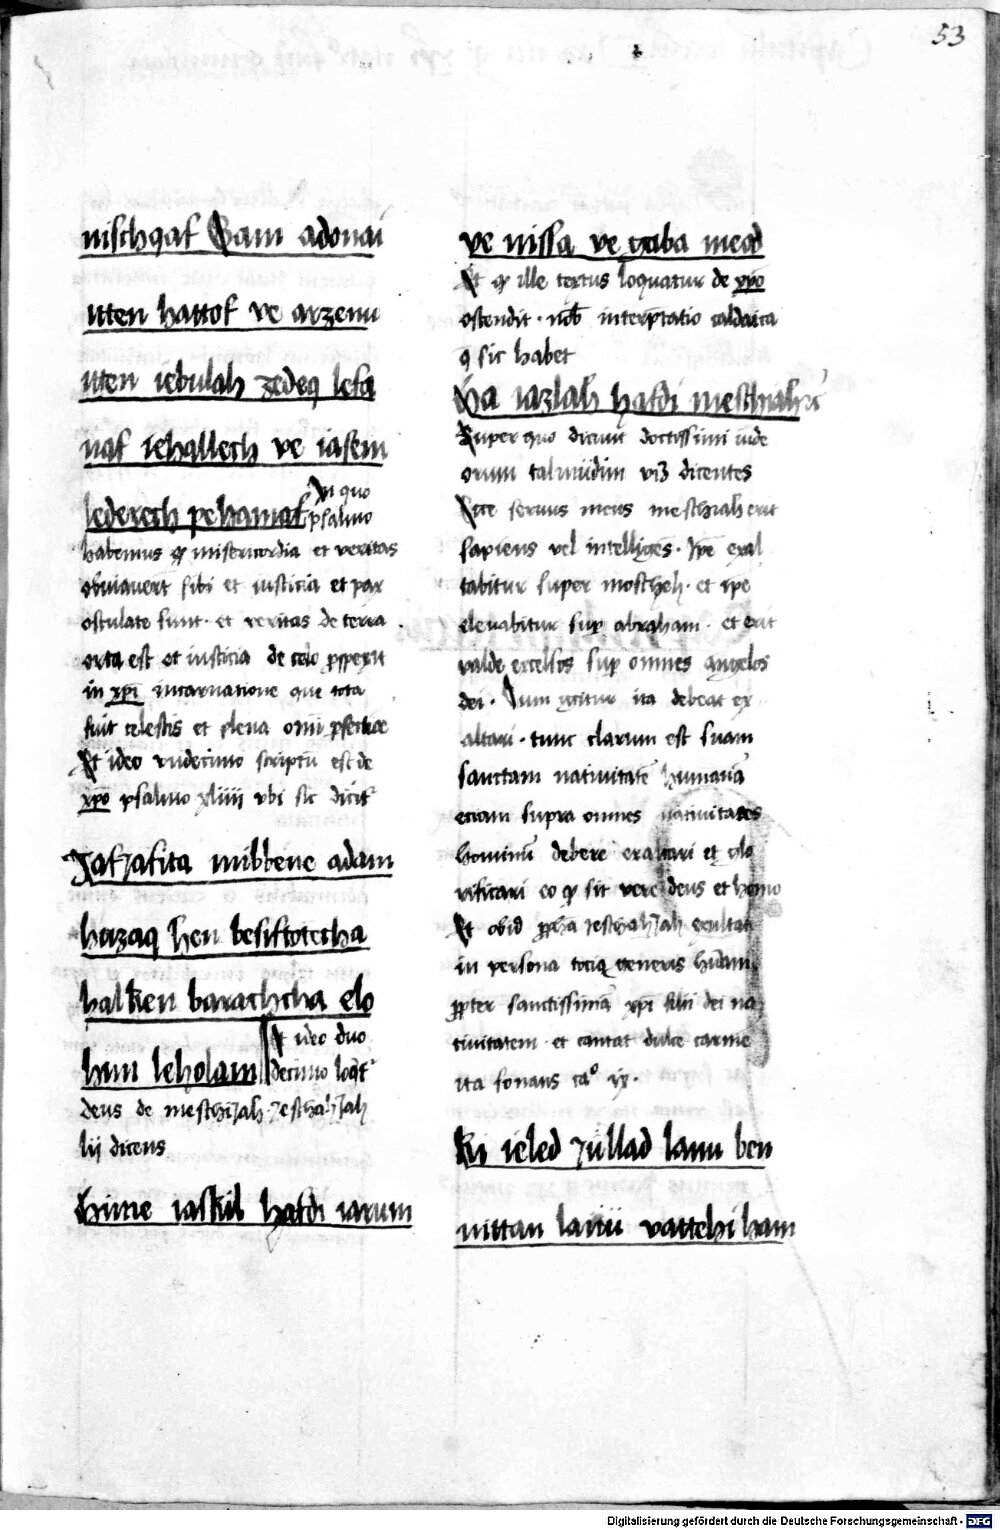 53
nischqaf Gam adonai
itten hattof ve arzenu
titen iebulah zedeq lefa
naf iehallech ve iasem
lederech pehamaf In quo
psalmo
habemus qͥ misericordia et veritas
obviavert sibi et iusticia et pax
osculate sunt · et veritas de terra
orta est et iusticia de celo prospexit
in xpi incarnatione que tota
fuit celestis et plena omi pfectioe
Et ideo undecimo scriptū est de
xpo psalmo xliiii ubi sic dicit
Jafjafita mibbene adam
huzaq hen besiftotecha
halken barachcha elo
him leholam Et ideo duo
decimo loqt
deus de meschijah · jeschahjah
lii dicens
Hinne iaskil hafdi iarum
ve nissa ve gaba mead
Et qͥ ille textus loquatur de xpo
ostendit · nob interptatio caldaica
q sic habet
Ha iazlah hafdi meschiahū
Super quo dicunt doctissimi iude
orum talmudim viz dicentes
Ecce servus meus meschiah erit
sapiens vel intelliges · Ipe exal
tabitur super moscheh · et ipe
elevabitur sup abraham · et erit
valde excelsos sup omnes angelos
dei · Cum igitur ita debeat ex
altari · tunc clarum est suam
sanctam nativitatē humanā
etiam supra omnes nativitates
hominū debere exaltari et glo
rificari eo qͥ sit vere deus et homo
Et obid ppha jeschahjah exultat
in persona tociq generis humani
ppter sanctissimā xpi filii dei na
tivitatem · et cantat dulce carme
ita sonans caº ix ·
Ki ieled jullad lanu ben
nittan lanu vattehi ham
Digitalisierung gefördert durch die Deutsche Forschungsgemeinschaft - DFG